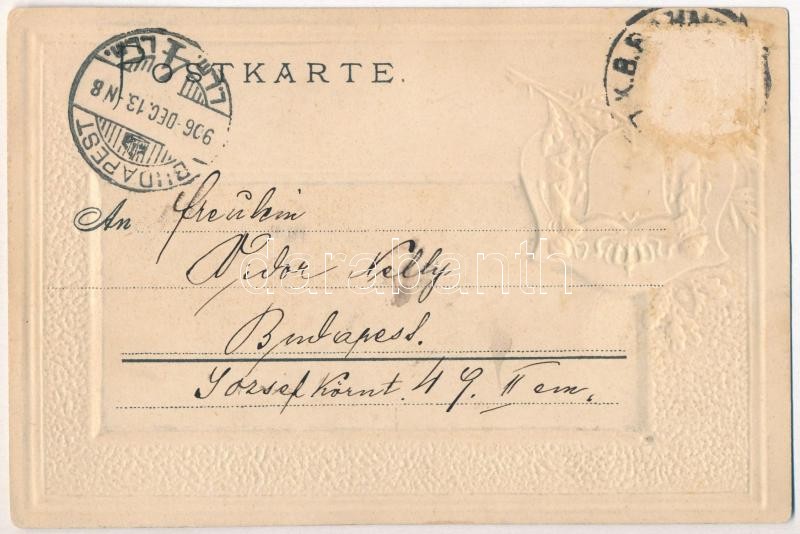 POSTKARTE.
BUDAPEST
906 DEC. 13. N 8
K.B.
An Freulein
Vidor Nelly
Budapest.
Jozsef Körut. 49. II em.
darabanth